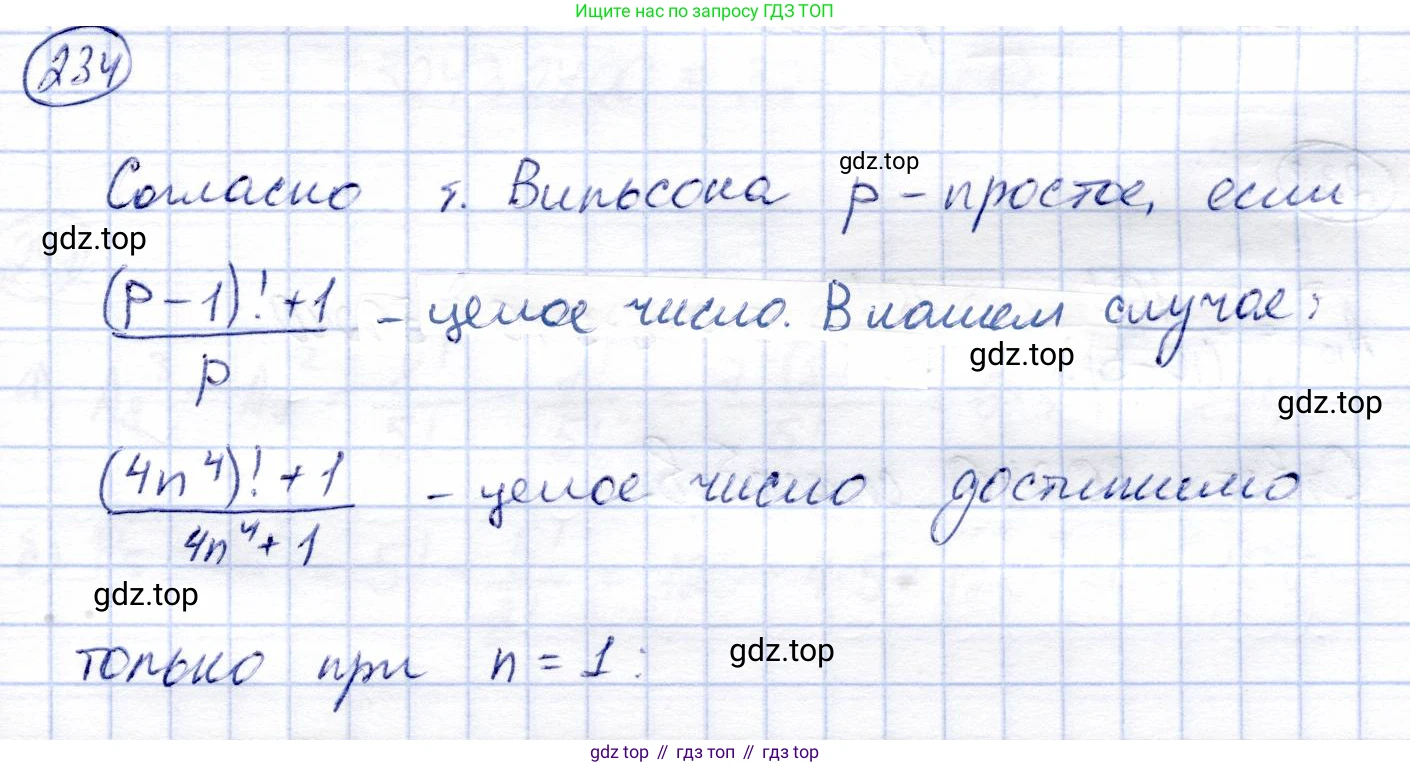 Ищите нас по запросу ГДЗ ТОП
234
gdz.top
Согласно т. Вильсона p - простое, если
gdz.top
(p-1)!+1 / p - целое число. В нашем случае:
gdz.top
gdz.top
(4n⁴)!+1 / 4n⁴+1 - целое число достижимо
gdz.top
только при n = 1:
gdz.top
gdz top // гдз топ // гдз top